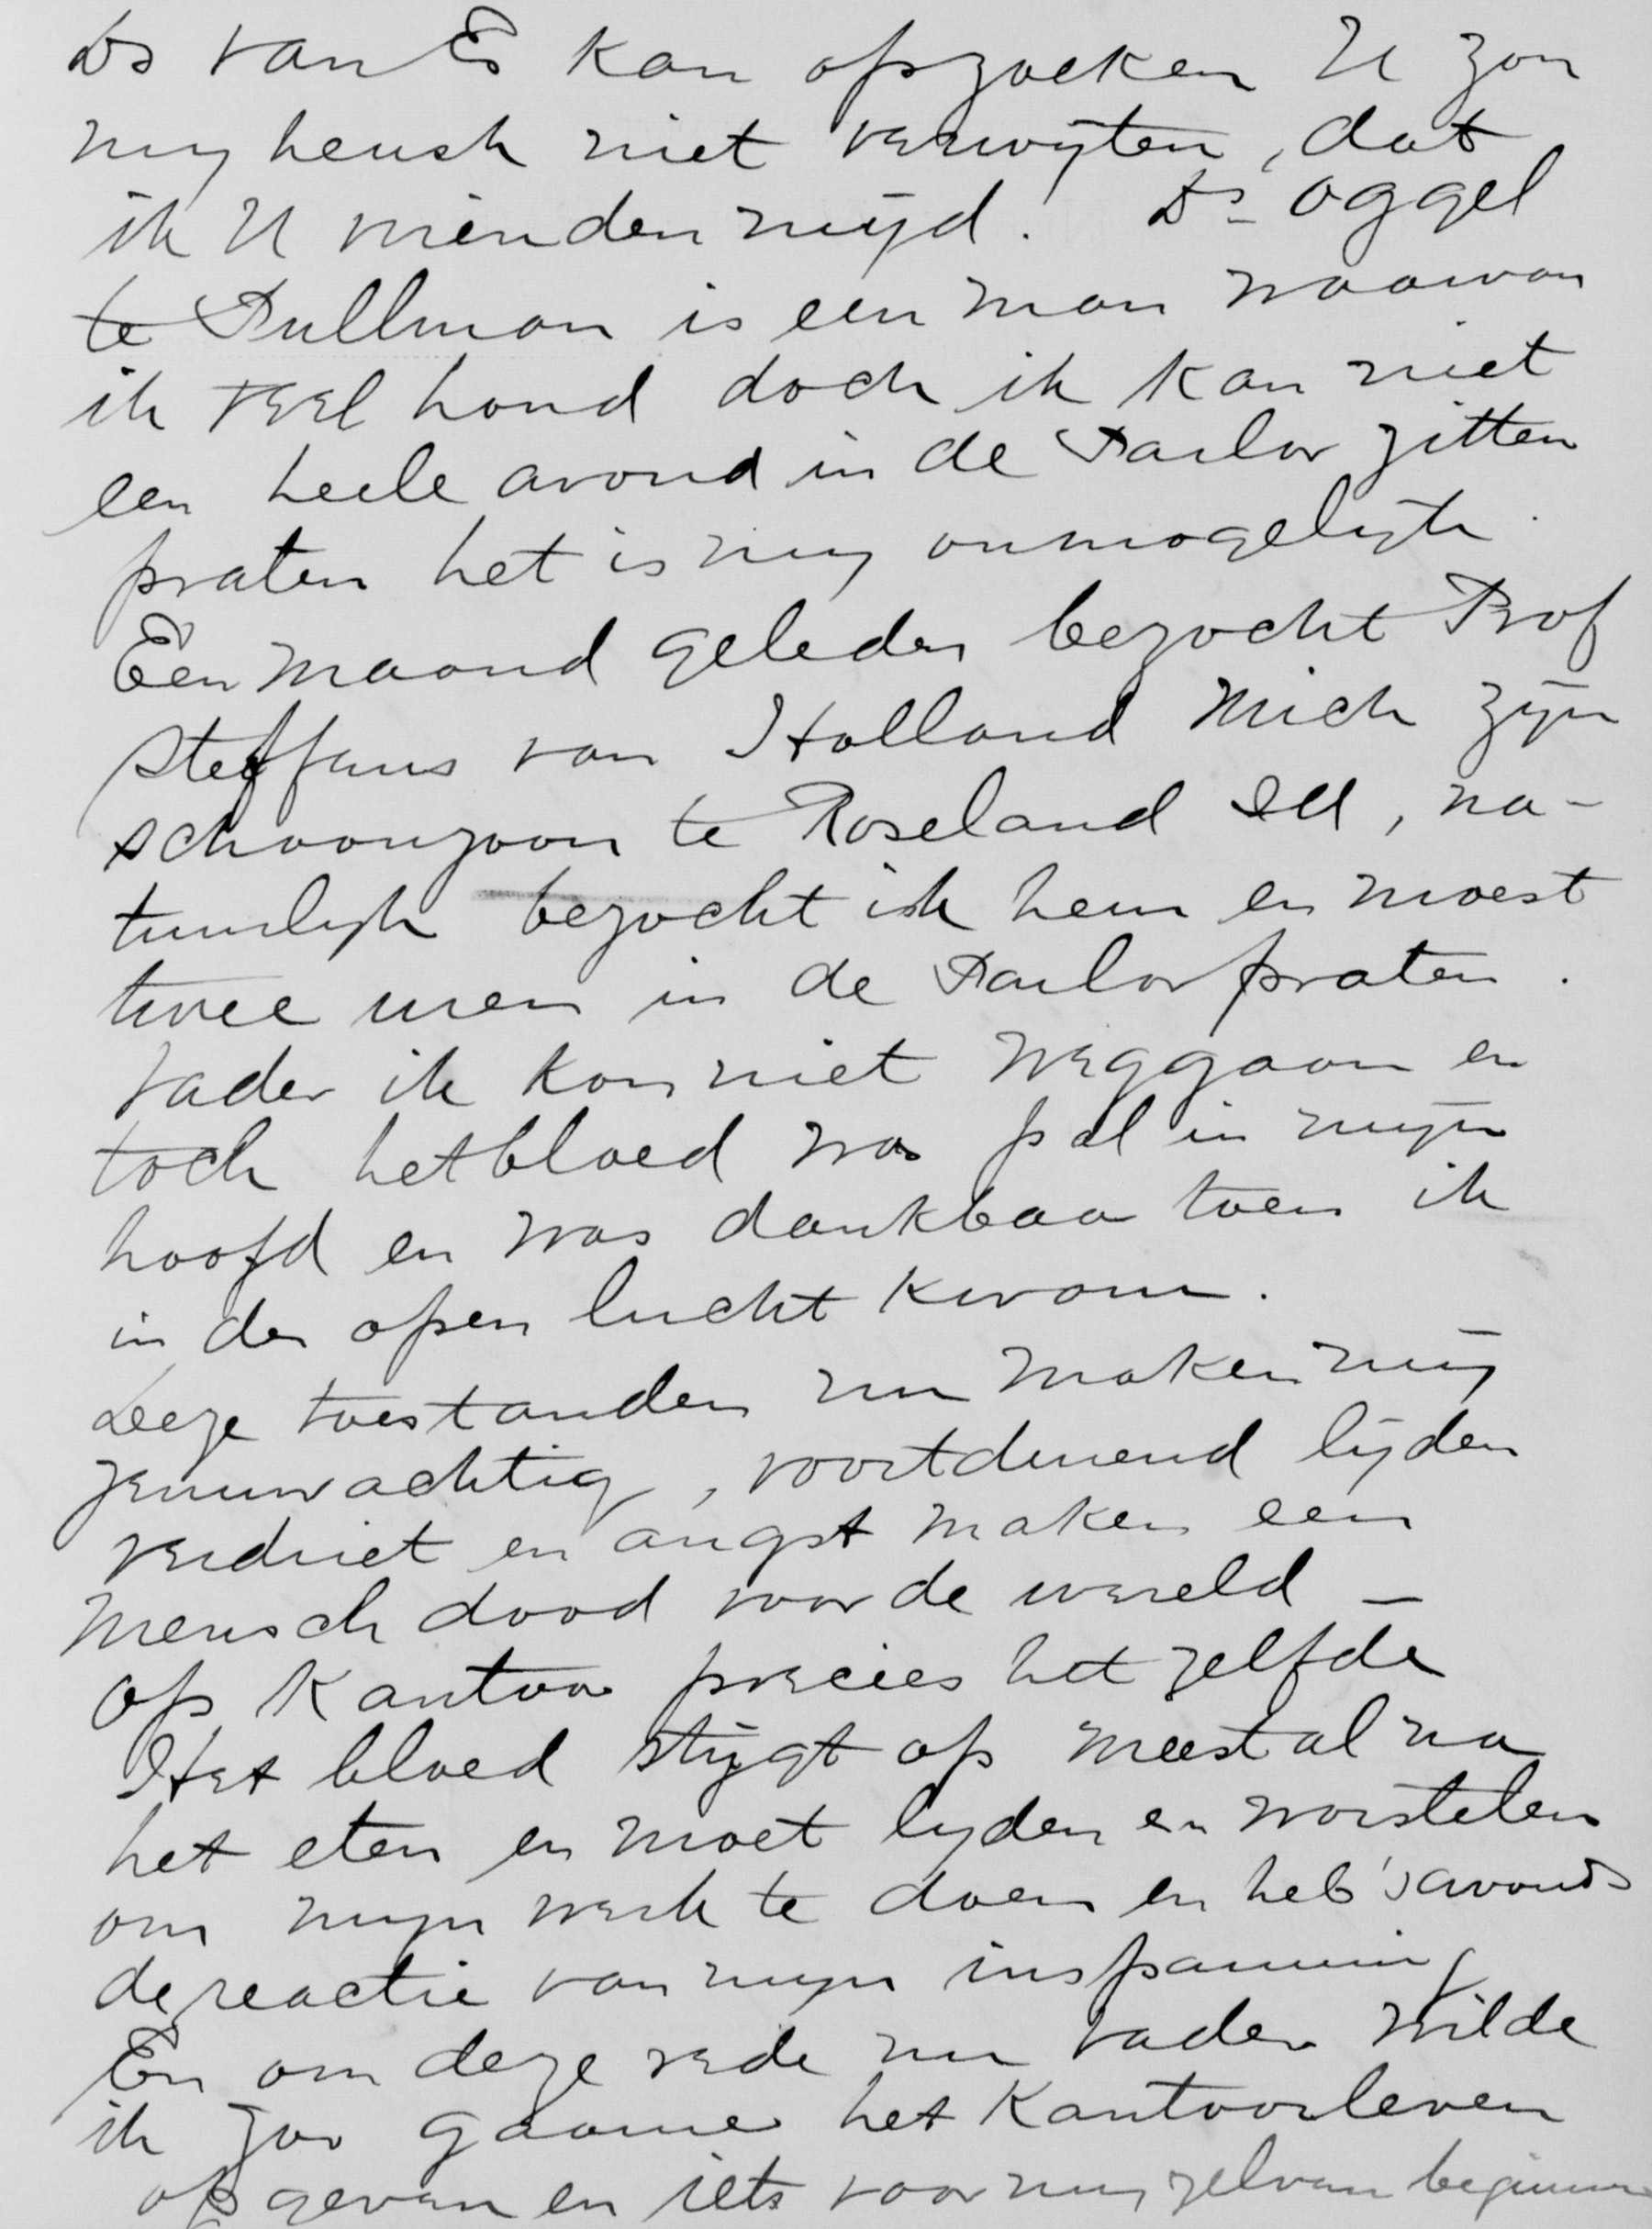 Ds van Es kan opzoeken U zou
mij heusch niet verwijten, dat
ik U vrienden mijd. Ds Oggel
te Pullman is een man waarvan
ik veel houd doch ik kan niet
een heele avond in de Parlor zitten
praten het is mij onmogelijk.
Een maand geleden bezocht Prof
Steffens van Holland Mich zijn
schoonzoon te Roseland Ill, na-
tuurlijk bezocht ik hem en moest
twee uren in de Parlor praten.
Vader ik kon niet weggaan en
toch het bloed was pal in mijn
hoofd en was dankbaar toen ik
in den open lucht kwam.
Deze toestanden nu maken mij
zenuwachtig, voortdurend lijden
verdriet en angst maken een
mensch dood voor de wereld –
Op Kantoor precies het zelfde
Het bloed stijgt op meestal na
het eten en moet lijden en worstelen
om mijn werk te doen en heb 's avonds
de reactie van mijn inspanning
En om deze rede nu Vader wilde
ik zoo gaarne het Kantoorleven
opgeven en iets voor mij zelven beginnen